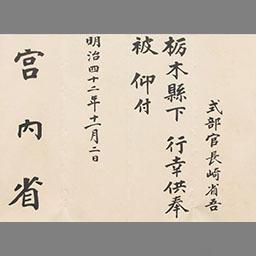 式部官長崎省吾
栃木縣下 行幸供奉
被 仰付
明治四十二年十一月二日
宮内省